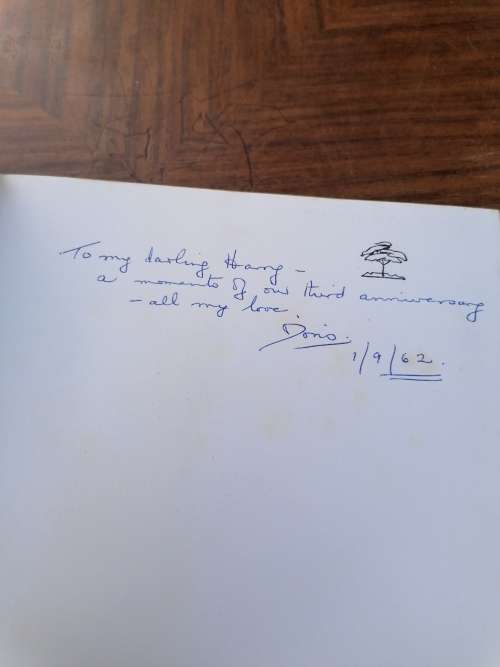 To my darling Harry –
a momento of our third anniversary
– all my love.
Doris.
1/9/62.